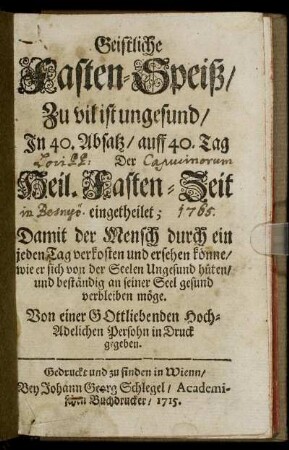 Geistliche
Fasten-Speiß/
Zu vil ist ungesund/
In 40. Absatz/ auff 40. Tag
Der
Capucinorum
Heil. Fasten-Zeit
in Besnyö. eingetheilet; 1765.
Damit der Mensch durch ein
jeden Tag verkosten und ersehen könne/
wie er sich von der Seelen Ungesund hüten/
und beständig an seiner Seel gesund
verbleiben möge.
Von einer GOttliebenden Hoch-
Adelichen Persohn in Druck
gegeben.
Gedruckt und zu finden in Wienn/
Bey Johann Georg Schlegel/ Academi-
schen Buchdrucker/ 1715.